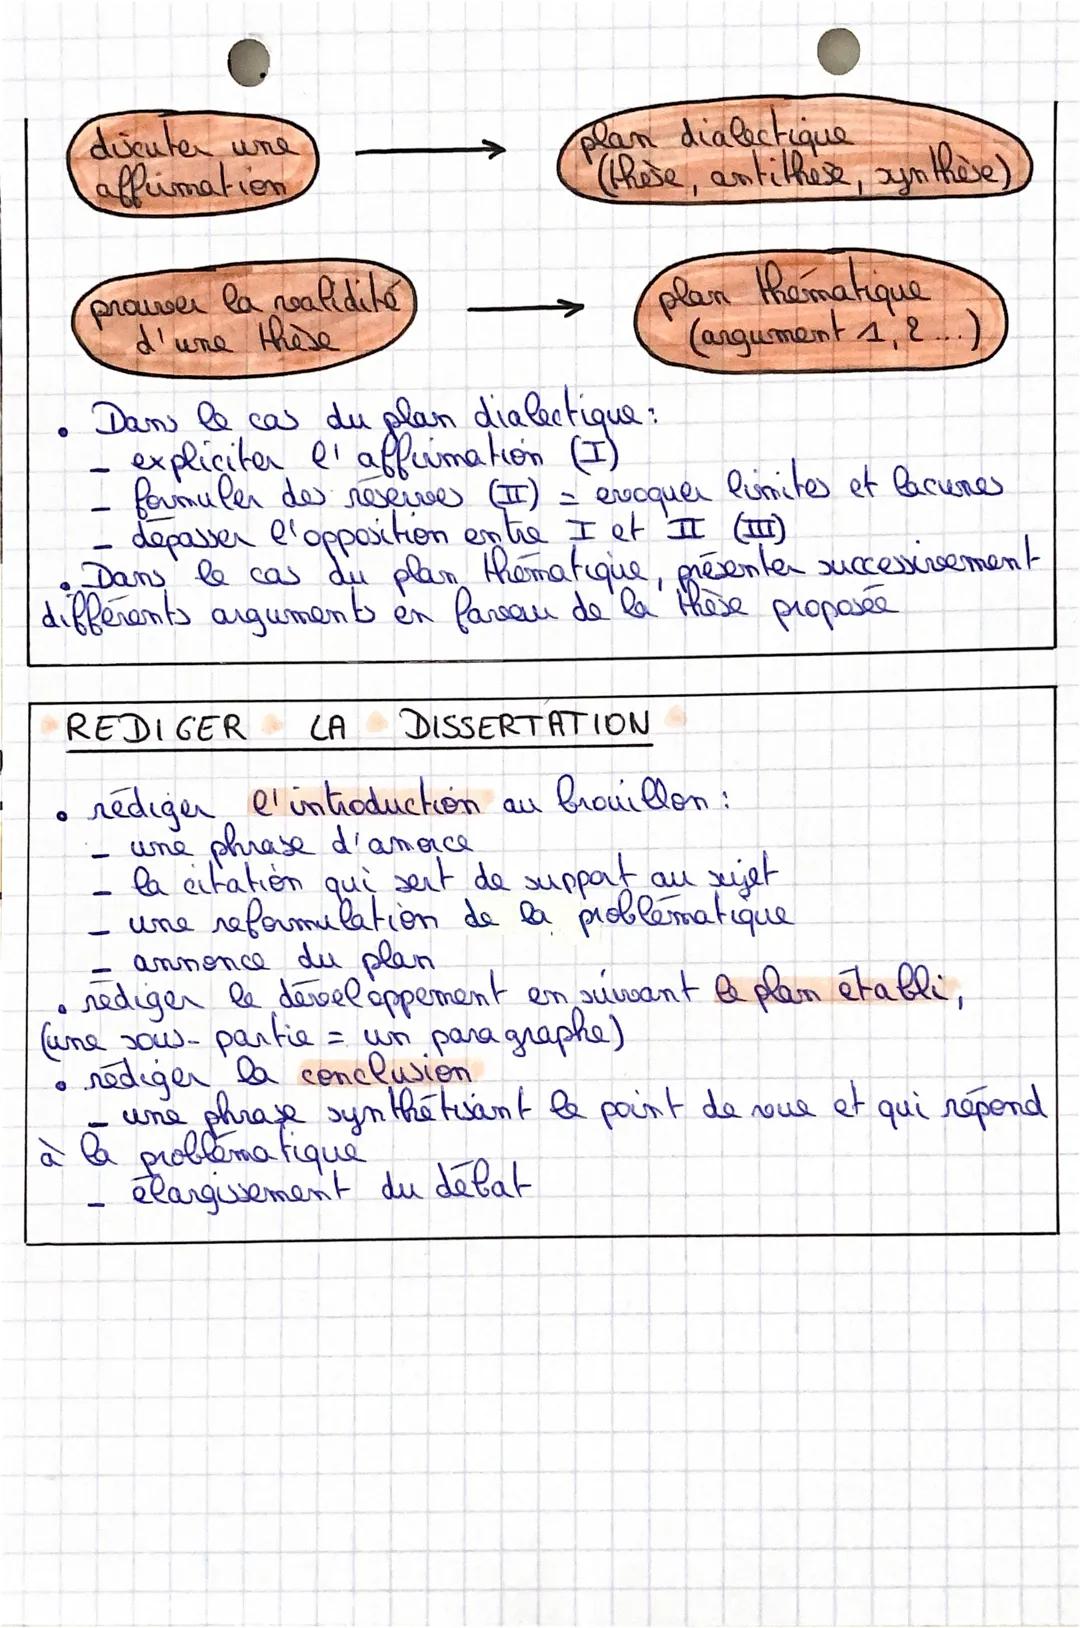 discuter une
affirmation
plan dialectique
(thèse, antithèse, synthèse)
prouver la validité
d'une thèse
plan thématique
(argument 1, 2 ...)
• Dans le cas du plan dialectique :
- expliciter l'affirmation (I)
- formuler des réserves (II) = evoquer limites et lacunes
- dépasser l'opposition entre I et II (III)
• Dans le cas du plan thématique, présenter successivement
différents arguments en faveur de la thèse proposée
REDIGER LA DISSERTATION
• rédiger l'introduction au brouillon :
- une phrase d'amorce
- la citation qui sert de support au sujet
- une reformulation de la problématique
- annonce du plan
• rédiger le développement en suivant le plan établi,
(une sous-partie = un paragraphe)
• rédiger la conclusion
- une phrase synthétisant le point de vue et qui répond
à la problématique
- élargissement du débat